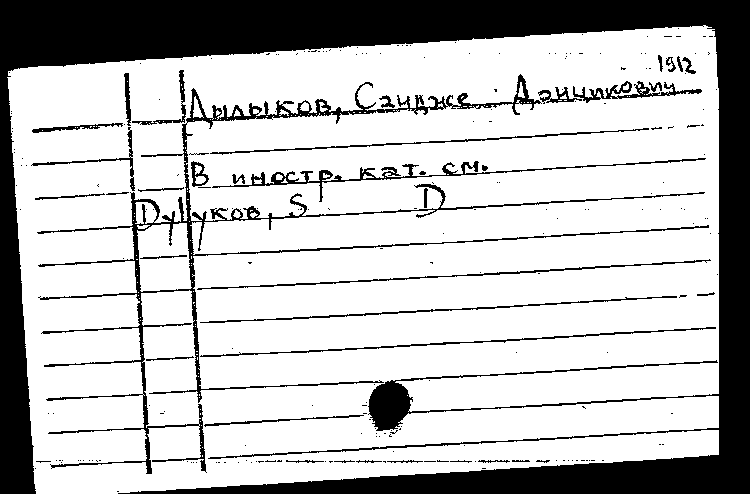 1912
Дылыков, Сандже Данцикович
В иностр. кат. см.
Dylykov, S D